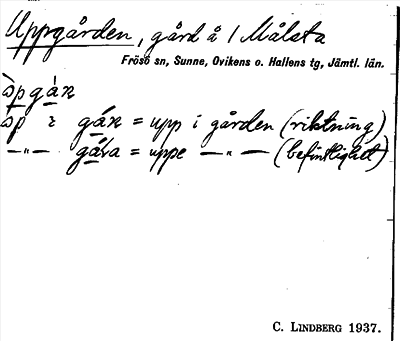 Uppgården, gård å / Målsta
Frösö sn, Sunne, Ovikens o. Hallens tg, Jämtl. län.
òpgàn
òp i gán = upp i gården (riktning)
—"— gáva = uppe —"— (befintlighet)
C. LINDBERG 1937.